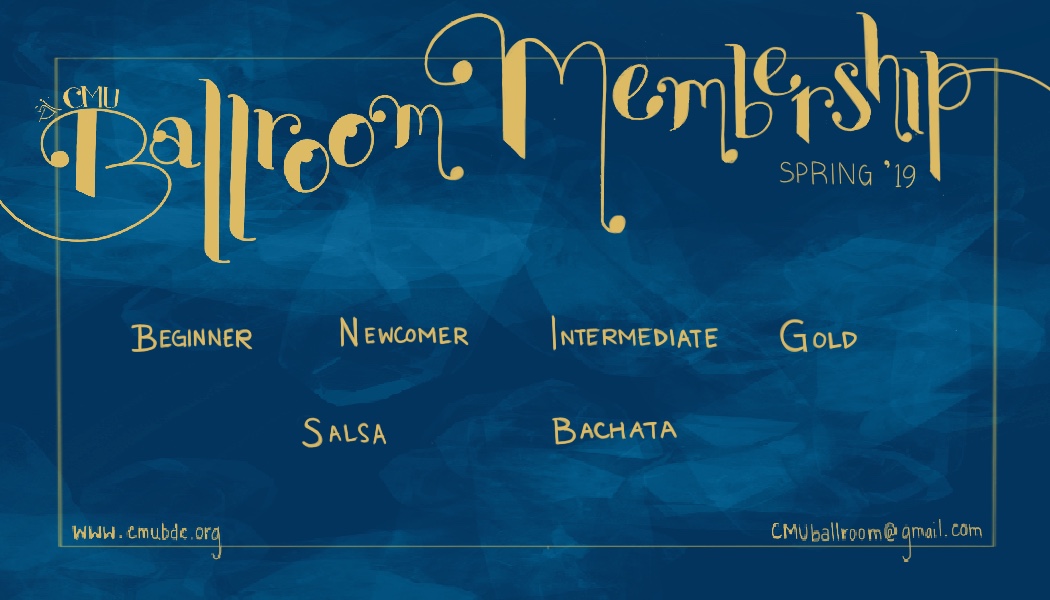 CMU
Ballroom Membership
SPRING '19
BEGINNER NEWCOMER INTERMEDIATE GOLD
SALSA BACHATA
www.cmubdc.org CMUballroom@gmail.com